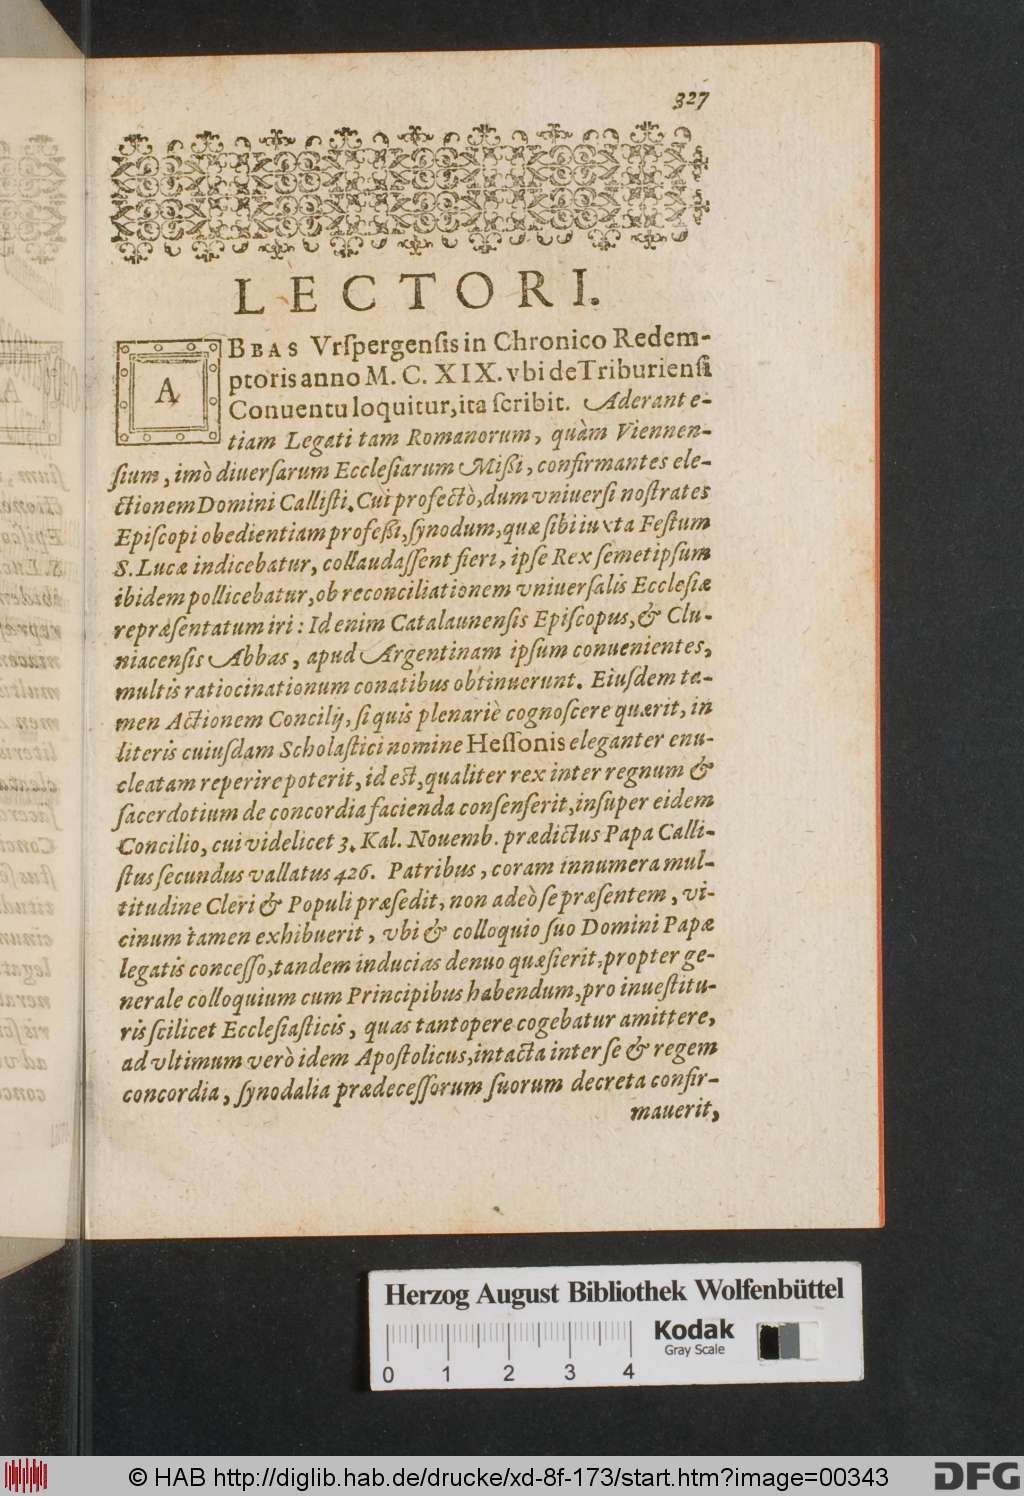 327
LECTORI.
ABBAS Vrſpergenſis in Chronico Redem-
ptoris anno M. C. XIX. vbi de Triburienſi
Conuentu loquitur, ita ſcribit. Aderant e-
tiam Legati tam Romanorum, quàm Viennen-
ſium, imò diuerſarum Eccleſiarum Mißi, confirmantes ele-
ctionem Domini Calliſti. Cui profectò, dum vniuerſi noſtrates
Epiſcopi obedientiam profeßi, ſynodum, quæ ſibi iuxta Feſtum
S. Lucæ indicebatur, collaudaſſent fieri, ipſe Rex ſemetipſum
ibidem pollicebatur, ob reconciliationem vniuerſalis Eccleſiæ
repræſentatum iri: Id enim Catalaunenſis Epiſcopus, & Clu-
niacenſis Abbas, apud Argentinam ipſum conuenientes,
multis ratiocinationum conatibus obtinuerunt. Eiuſdem ta-
men Actionem Concilij, ſi quis plenariè cognoſcere quærit, in
literis cuiuſdam Scholaſtici nomine Heſſonis eleganter enu-
cleatam reperire poterit, id eſt, qualiter rex inter regnum &
ſacerdotium de concordia facienda conſenſerit, inſuper eidem
Concilio, cui videlicet 3. Kal. Nouemb. prædictus Papa Calli-
ſtus ſecundus vallatus 426. Patribus, coram innumera mul-
titudine Cleri & Populi præſedit, non adeò ſe præſentem, vi-
cinum tamen exhibuerit, vbi & colloquio ſuo Domini Papæ
legatis conceſſo, tandem inducias denuo quæſierit, propter ge-
nerale colloquium cum Principibus habendum, pro inueſtitu-
ris ſcilicet Eccleſiaſticis, quas tantopere cogebatur amittere,
ad vltimum verò idem Apoſtolicus, intacta inter ſe & regem
concordia, ſynodalia prædeceſſorum ſuorum decreta confir-
mauerit,
Herzog August Bibliothek Wolfenbüttel
Kodak
Gray Scale
0 1 2 3 4
© HAB http://diglib.hab.de/drucke/xd-8f-173/start.htm?image=00343
DFG